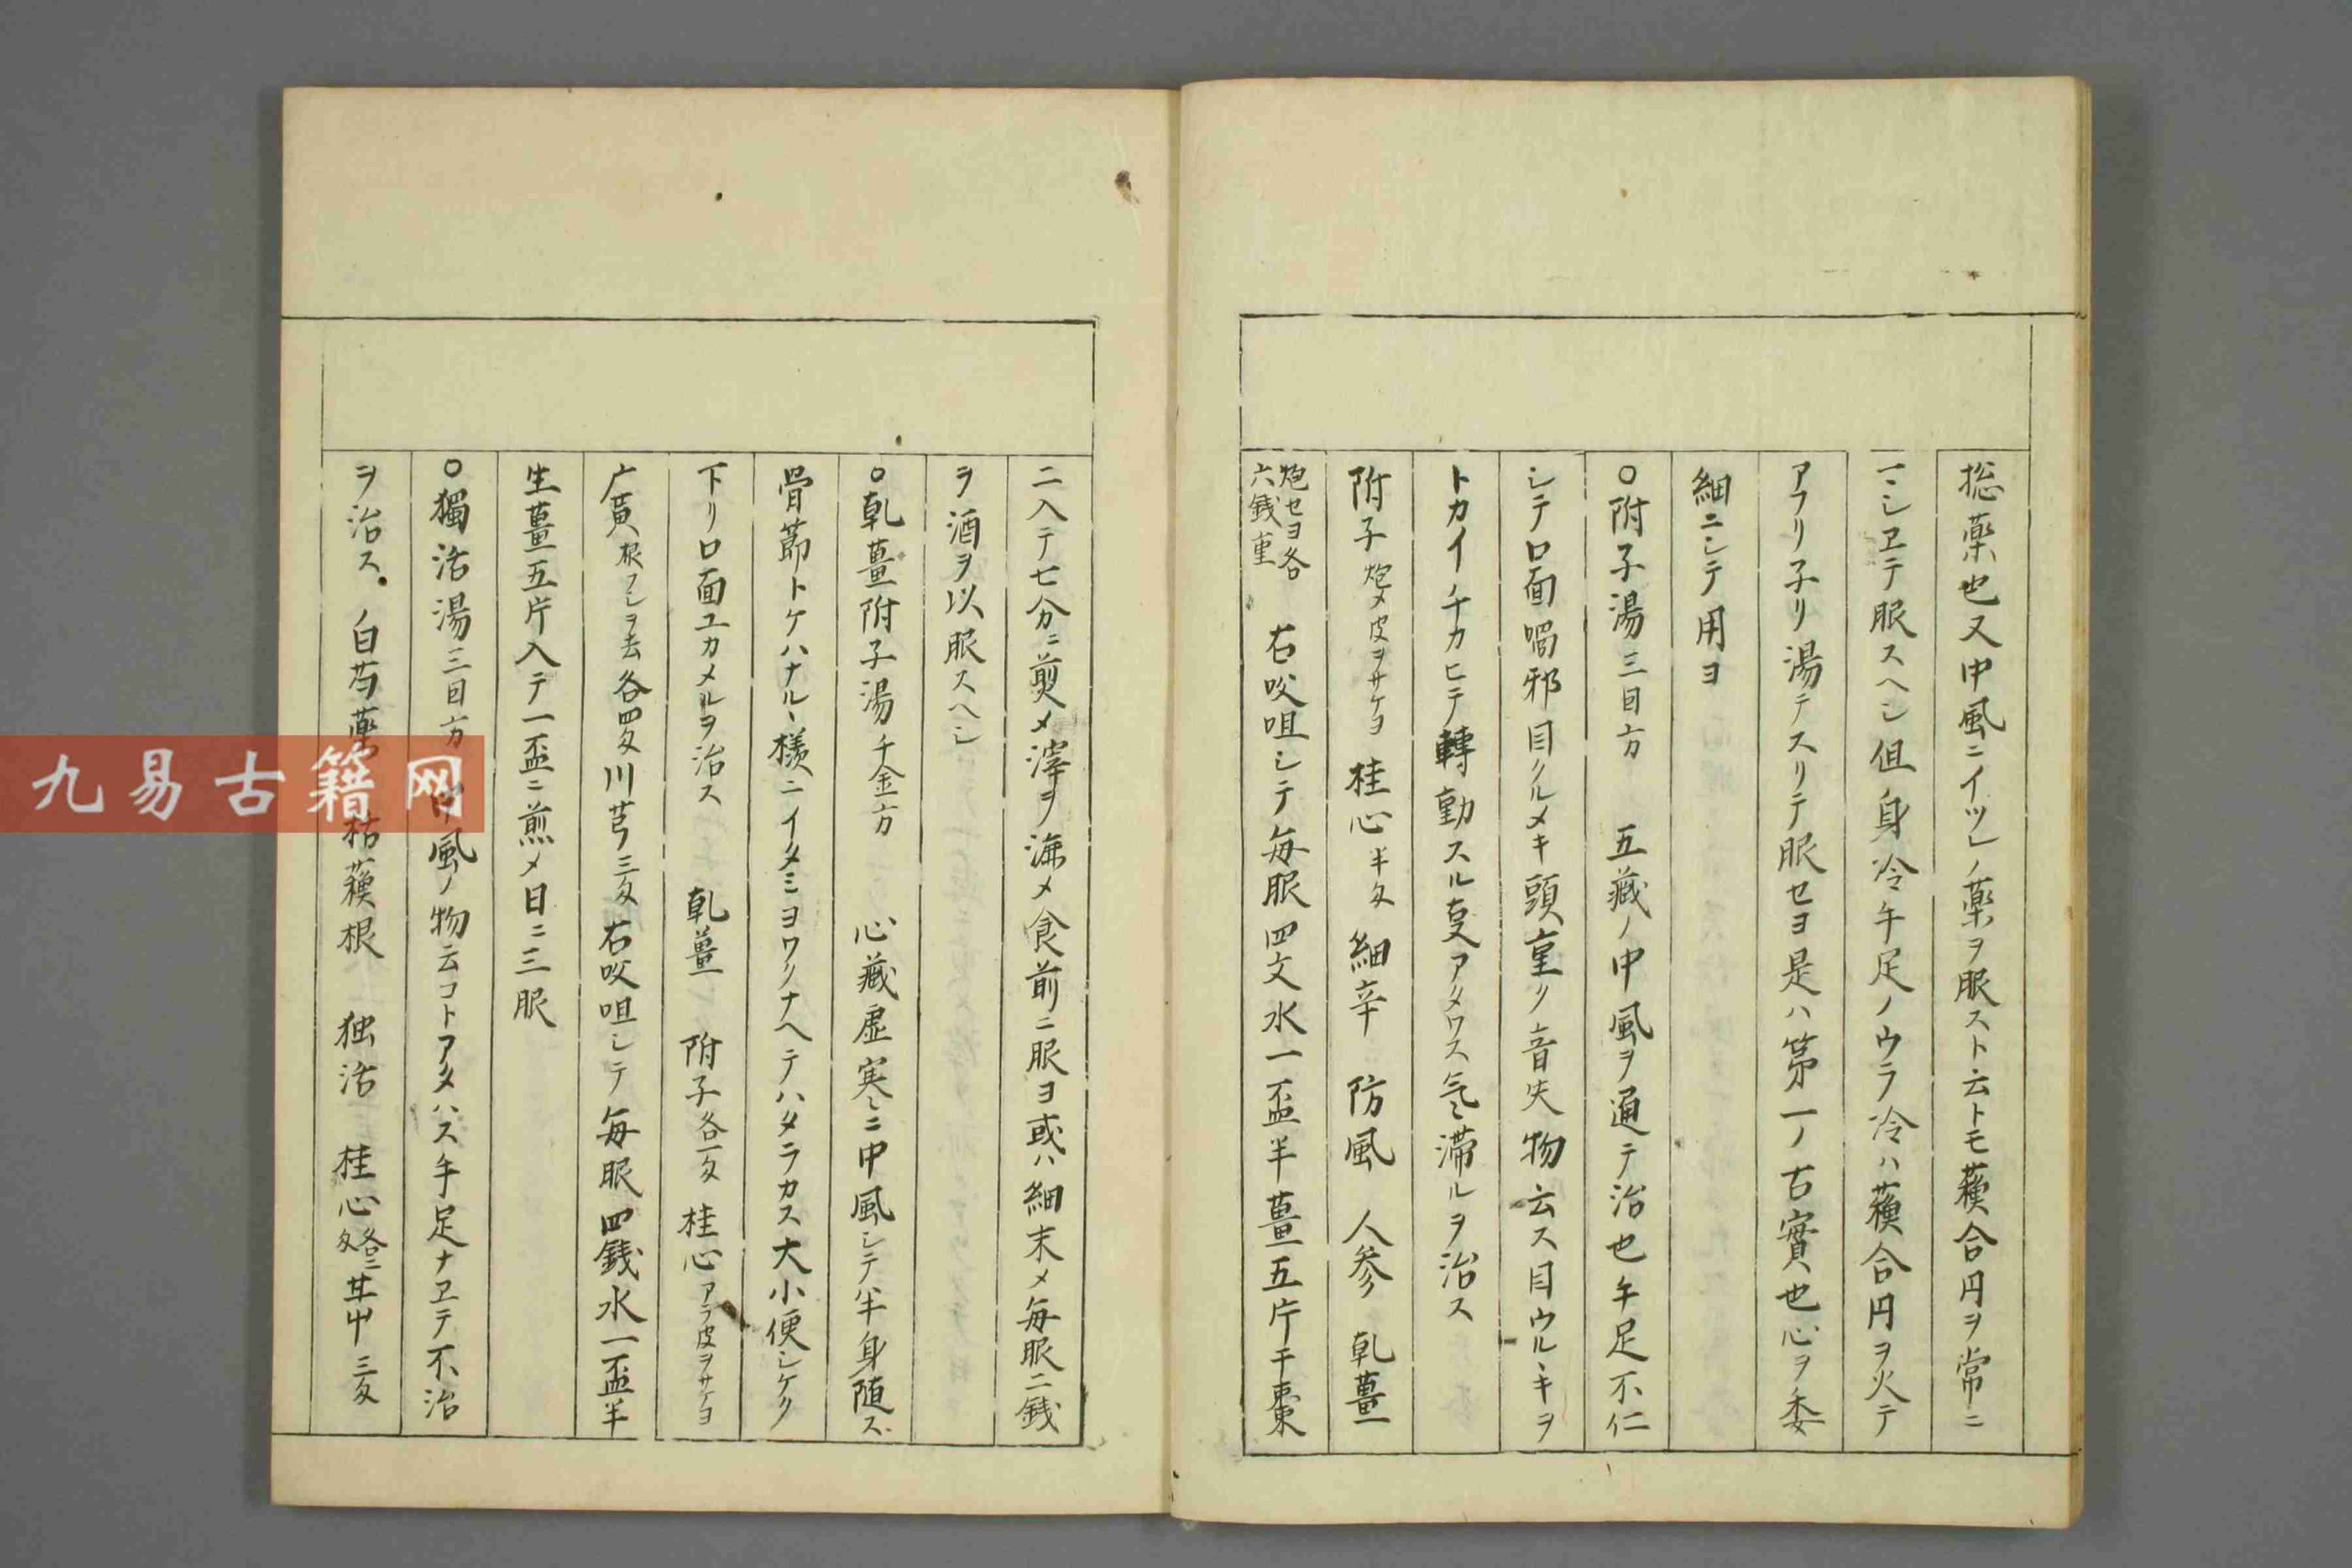 捴薬也又中風ニイツレノ薬ヲ服スト云トモ蘓合円ヲ常ニ
マシヱテ服スヘシ但身冷手足ノウラ冷ハ蘓合円ヲ火テ
アフリ子リ湯テスリテ服セヨ是ハ第一ノ古實也心ヲ委
細ニシテ用ヨ
○附子湯三因方 五藏ノ中風ヲ通テ治也手足不仁
シテロ面喎邪目クルメキ頭重ク音失物云ス目ウルヽキヲ
トカイチカヒテ轉動スル叓アタワス気滞ルヲ治ス
附子炮メ皮ヲサケヨ 桂心半夊 細辛 防風 人参 乹薑
炮セヨ各六銭重 右㕮咀シテ毎服四文水一盃半薑五片干棗
二入テ七分ニ煎メ滓ヲ漉メ食前ニ服ヨ或ハ細末メ毎服二銭
ヲ酒ヲ以服スヘシ
○乹薑附子湯千金方 心藏虚寒ニ中風シテ半身随ス
骨節トケハナルヽ様ニイタミヨワクナヘテハタラカス大小便シケク
下リ口面ユカメルヲ治ス 乹薑 附子各一夊 桂心アラ皮ヲサケヨ
广黄根フシヲ去各四夊川芎三夊右㕮咀シテ毎服四銭水一盃半
生薑五片入テ一盃ニ煎メ日ニ三服
○獨活湯三因方 中風ノ物云コトアタハス手足ナヱテ不治
ヲ治ス 白芍薬 栝蘓根 独活 桂心各二夊 甘艸三夊
九易古籍网